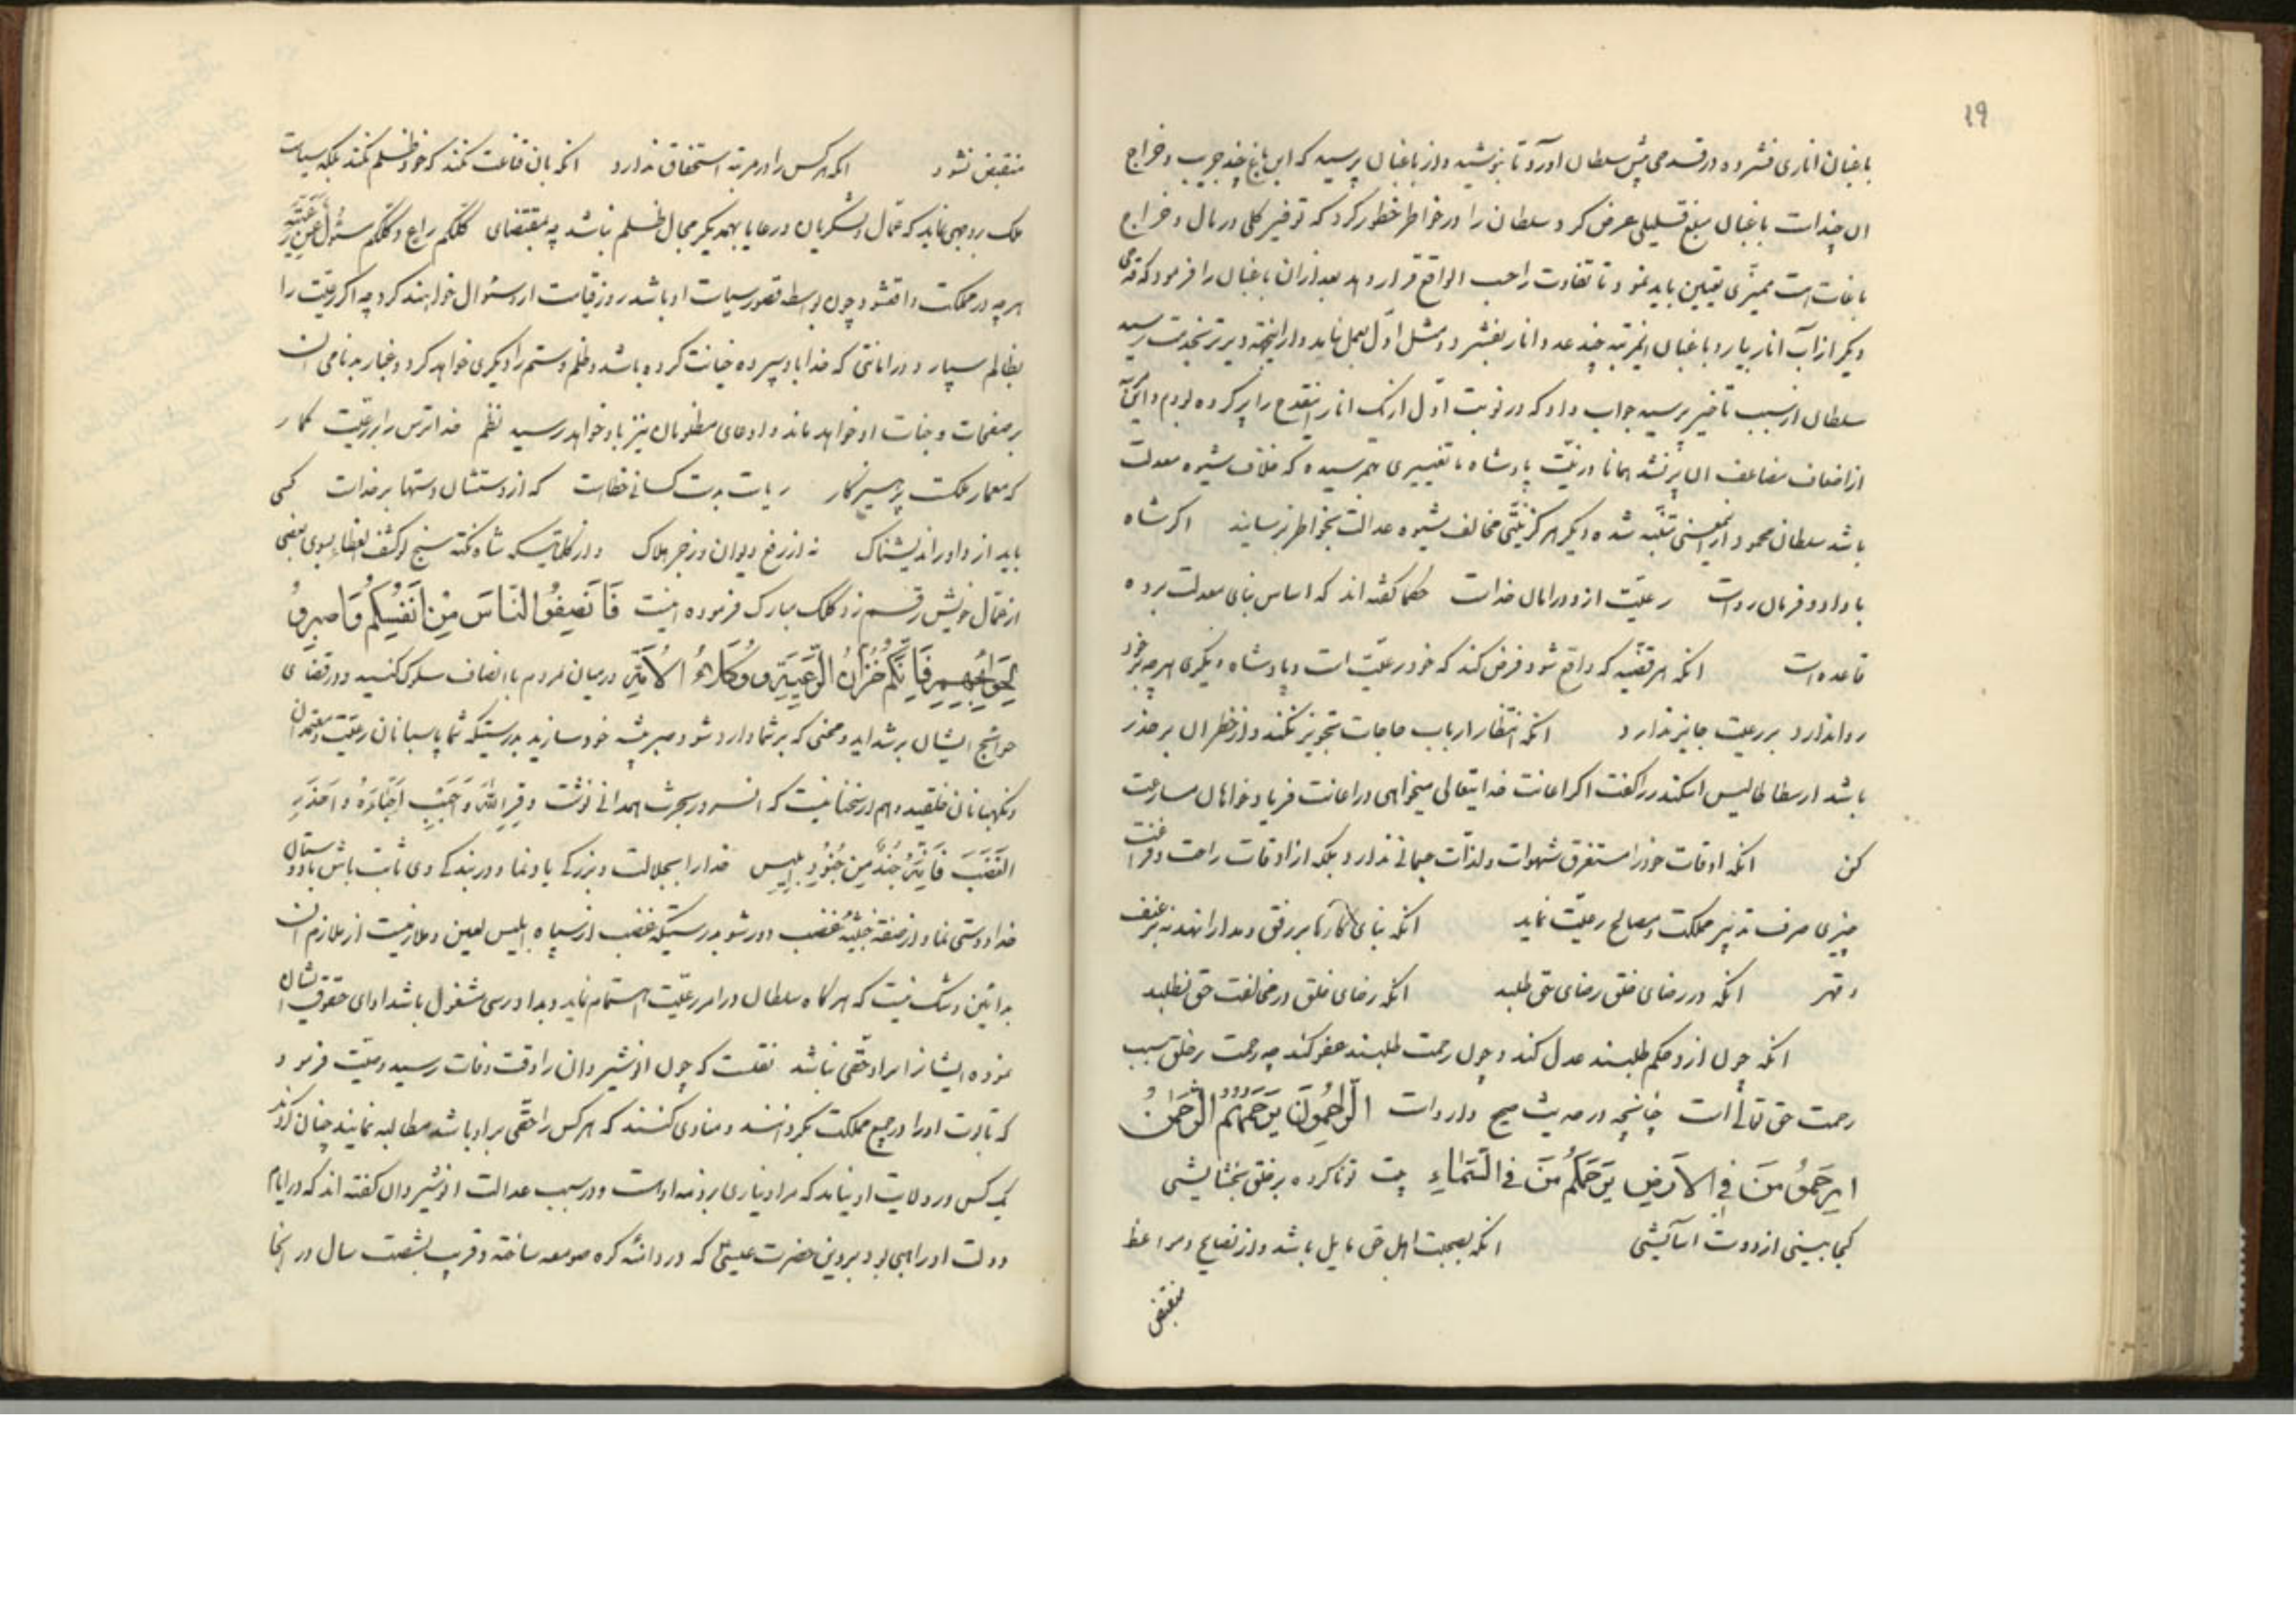 ۱۹
باغبان اناری فشرده در قدحی پیش سلطان آورد تا بنوشید و از باغبان پرسید که این باغ چند جریب و خراج
ان چند است باغبان مبلغ قلیلی عرض کرد سلطان را در خاطر خطور کرد که توفیر کلی در مال و خراج
باغات است ممیزی تعیین باید نمود تا تفاوت را حسب الواقع قرار دهد بعد از ان باغبان را فرمود که قدحی
دیکر از آب انار بیارد باغبان اینمرتبه چند عدد انار بفشرد و مثل اول بعمل نیاید و از اینجهة دیرتر بخدمت رسید
سلطان از سبب تأخیر پرسید جواب داد که در نوبت اول از یک انار اینقدح را پر کرده بودم و اکنون
از اضعاف مضاعف ان پر نشد همانا در نیّت پادشاه تغییری بهم رسیده که خلاف شیوه معدلت
باشد سلطان محمود از اینمعنی متنبّه شده دیکر هرکز نیّتی مخالف شیوه عدالت بخواطر نرسانید اکر شاه
با داد و فرمان رواست رعیّت از و در امان خداست حکما کفته اند که اساس بنای معدلت بر ده
قاعده است انکه هر قضیّه که واقع شود فرض کند که خود رعیّت است و پادشاه دیکری هر چه بر خود
روا ندارد بر رعیت جایز ندارد انکه انتظار ارباب حاجات تجویز نکند و از خطر ان بر حذر
باشد ارسطاطالیس اسکندر را کفت اکر اعانت خدایتعالی میخواهی در اعانت فریاد خواهان مسارعت
کن انکه اوقات خود را مستغرق شهوات و لذّات جسمانی ندارد بلکه از اوقات راحت و فراغت
چیزی صرف تدبیر مملکت و مصالح رعیّت نماید انکه بنای کارها بر رفق و مدارا نهد نه بر عنف
و قهر انکه در رضای خلق رضای حق طلبد انکه رضای خلق در مخالفت حق نطلبد
انکه چون از و حکم طلبند عدل کند و چون رحمت طلبند عفو کند چه رحمت بر خلق سبب
رحمت حق تعالی است چنانچه در حدیث صحیح وارد است الرّاحِمُونَ یَرحَمُهُمُ الرَّحمٰنُ
اِرحَمُوا مَن فِی الاَرضِ یَرحَمکُم مَن فِی السَّمَاءِ بیت تو ناکرده بر خلق بخشایشی
کجا بینی از دولت آسایشی انکه بصحبت اهل حق مایل باشد و از نصایح و مواعظ
منقبض
منقبض نشود انکه هر کس را در مرتبه استحقاق ندارد انکه بان قناعت نکند که خود ظلم نکند بلکه سیاست
ملک بر وجهی نماید که عمّال و لشکریان و رعایا بهمدیکر مجال ظلم نباشد چه بمقتضای کلّکم راعٍ و کلّکم مسئول عن رعیّته
هر چه در مملکت واقع شود چون بواسطه قصور سیاست او باشد روز قیامت از و سئوال خواهند کرد چه اکر رعیّت را
بظالم سپارد در امانتی که خدا باو سپرده خیانت کرده باشد و ظلم و ستم را دیکری خواهد کرد و غبار بدنامی ان
بر صفحات وجنات او خواهد ماند و دعای مظلومان نیز باو خواهد رسید نظم خدا ترس را بر رعیّت کمار
که معمار ملکت پرهیزکار ریاست بدست کسانی خطاست که از دستشان دستها بر خداست کسی
باید از داور اندیشناک نه از رفع دیوان و زجر هلاک و از کلماتیکه شاه نکته سنج لوکشف الغطاء بسوی بعضی
از عمّال خویش رقم زد کلک مبارک فرموده اینست فَاَنصِفُوا النّاسَ مِن اَنفُسِکُم وَاصبِرُوا
لِحَوائِجِهِم فَاِنَّکُم خُزّانُ الرَّعِیَّةِ وَ وُکَلاءُ الاُمَّةِ در میان مردم با انصاف سلوک کنید و در قضای
حوائج ایشان برشد اید و محنی که بر شما وارد شود صبر پیشه خود سازید بدرستیکه شما پاسبانان رعیّت و معتمدان
و نکهبانان خلقید و هم در سخنانیست که انسرور بحرث همدانی نوشت وَقِّرِ اللهَ وَ اَحبِب اَحِبّاءَهُ وَ احذَرِ
الغَضَبَ فَاِنَّهُ جُندٌ مِن جُنُودِ اِبلِیس خدا را بجلالت و بزرکی یاد نما و در بندکی وی ثابت باش با دوستان
خدا دوستی نما و از صفة خبیثهٔ غضب دور شو بدرستیکه غضب از سپاه ابلیس لعین و ملازمیت از ملازم ان
بدائین و شک نیست که هر کاه سلطان در امر رعیّت اهتمام نماید و بدادرسی مشغول باشد ادای حقوق ایشان
نموده ایشانرا بر او حقّی نباشد نقلست که چون انوشیروان را وقت وفات رسید وصیّت فرمود
که تابوت او را در جمیع مملکت بکردانند و منادی کنند که هر کس را حقّی بر او باشد مطالبه نمایند چنان کردند
یک کس در ولایت او نیامد که مرا دیناری بر ذمه اوست و در سبب عدالت انوشیروان کفته اند که در ایام
دولت او راهبی بود بر دین حضرت عیسی که در دامنه کره صومعه ساخته و قریب بشصت سال در انجا